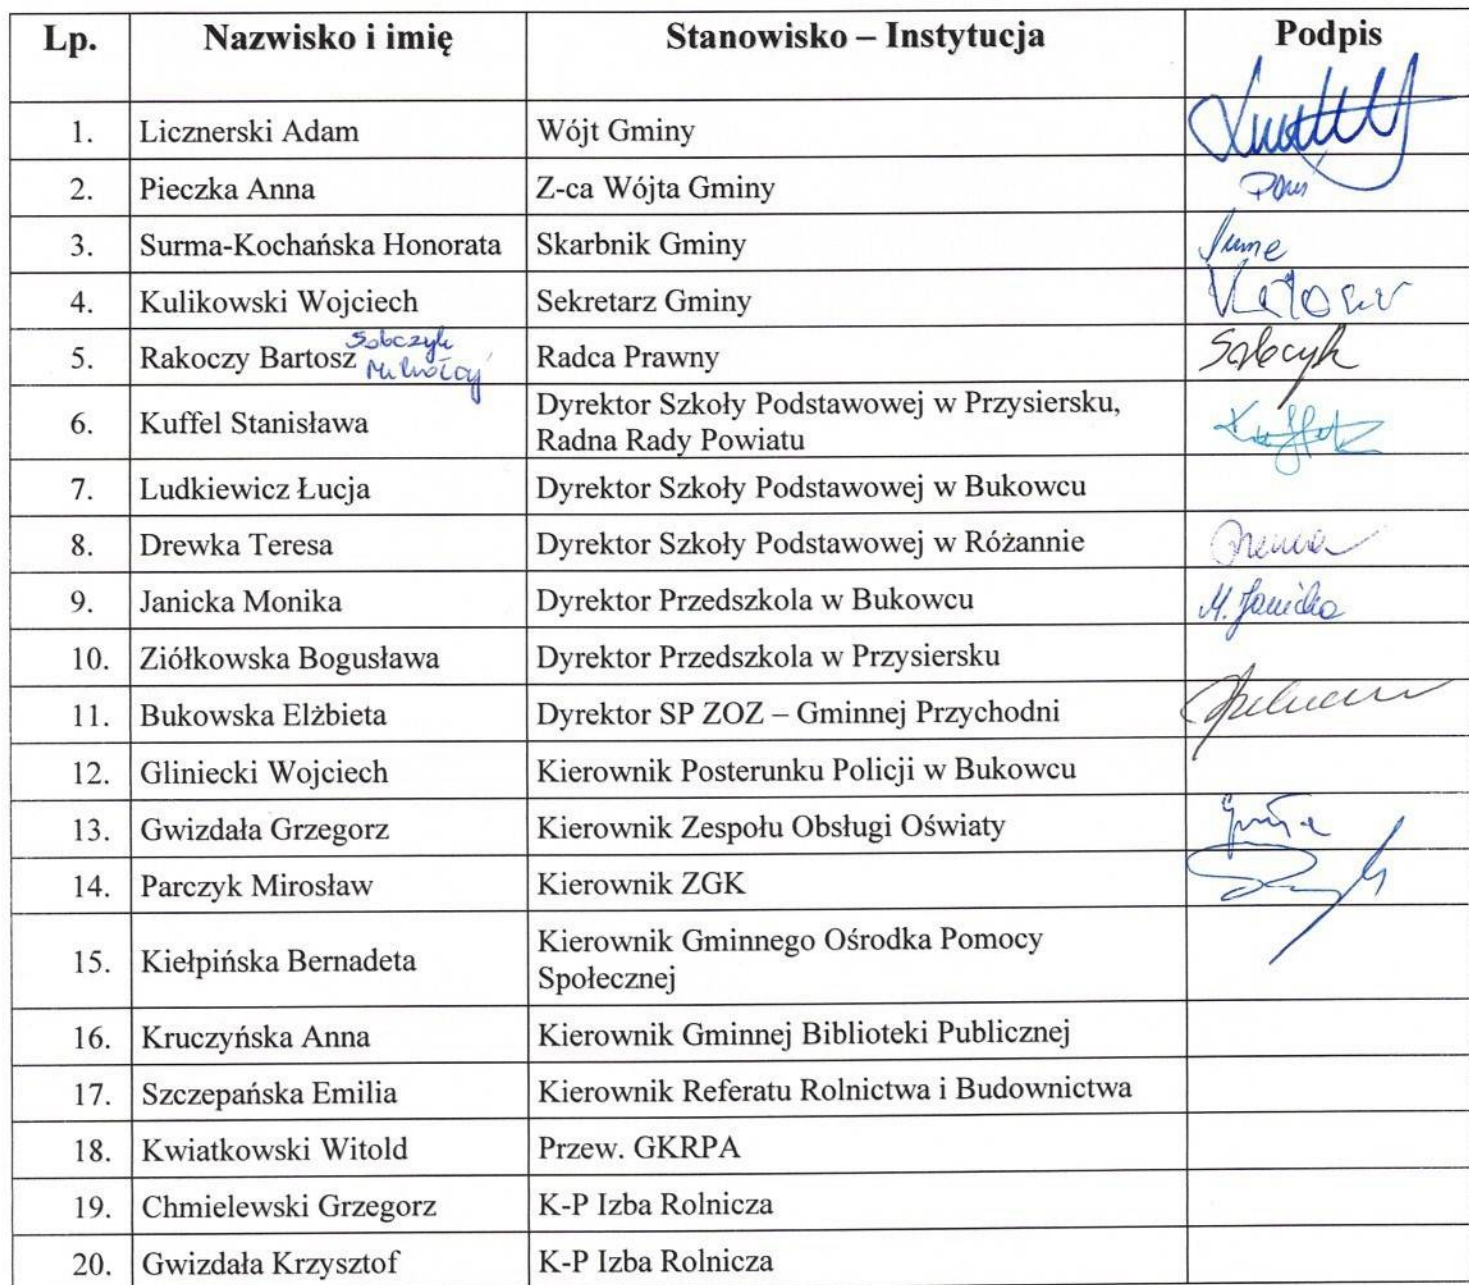 Lp. Nazwisko i imię Stanowisko – Instytucja Podpis
1. Licznerski Adam Wójt Gminy
2. Pieczka Anna Z-ca Wójta Gminy
3. Surma-Kochańska Honorata Skarbnik Gminy
4. Kulikowski Wojciech Sekretarz Gminy
5. Rakoczy Bartosz Sobczyk Mikołaj Radca Prawny Sobczyk
6. Kuffel Stanisława Dyrektor Szkoły Podstawowej w Przysiersku,
Radna Rady Powiatu
7. Ludkiewicz Łucja Dyrektor Szkoły Podstawowej w Bukowcu
8. Drewka Teresa Dyrektor Szkoły Podstawowej w Różannie
9. Janicka Monika Dyrektor Przedszkola w Bukowcu M. Janicka
10. Ziółkowska Bogusława Dyrektor Przedszkola w Przysiersku
11. Bukowska Elżbieta Dyrektor SP ZOZ – Gminnej Przychodni
12. Gliniecki Wojciech Kierownik Posterunku Policji w Bukowcu
13. Gwizdała Grzegorz Kierownik Zespołu Obsługi Oświaty
14. Parczyk Mirosław Kierownik ZGK
15. Kiełpińska Bernadeta Kierownik Gminnego Ośrodka Pomocy
Społecznej
16. Kruczyńska Anna Kierownik Gminnej Biblioteki Publicznej
17. Szczepańska Emilia Kierownik Referatu Rolnictwa i Budownictwa
18. Kwiatkowski Witold Przew. GKRPA
19. Chmielewski Grzegorz K-P Izba Rolnicza
20. Gwizdała Krzysztof K-P Izba Rolnicza